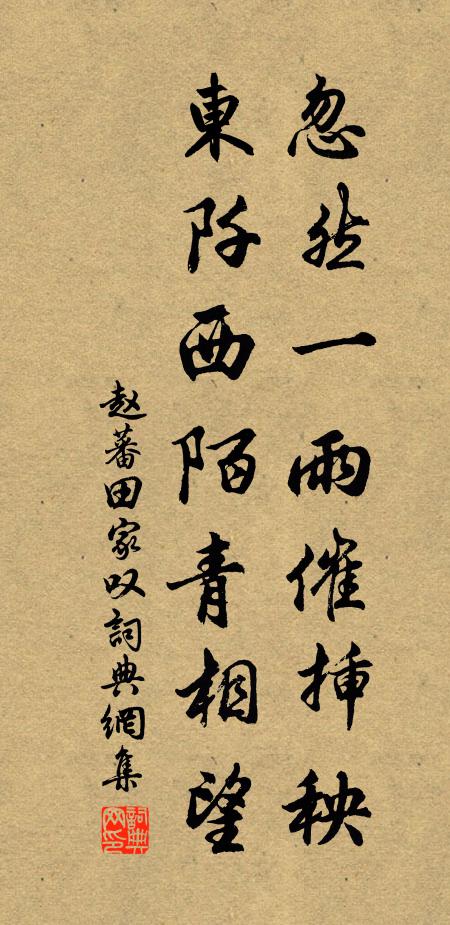 忽然一雨催插秧
東阡西陌青相望
赵蕃田家叹詞典網集
詞典网印